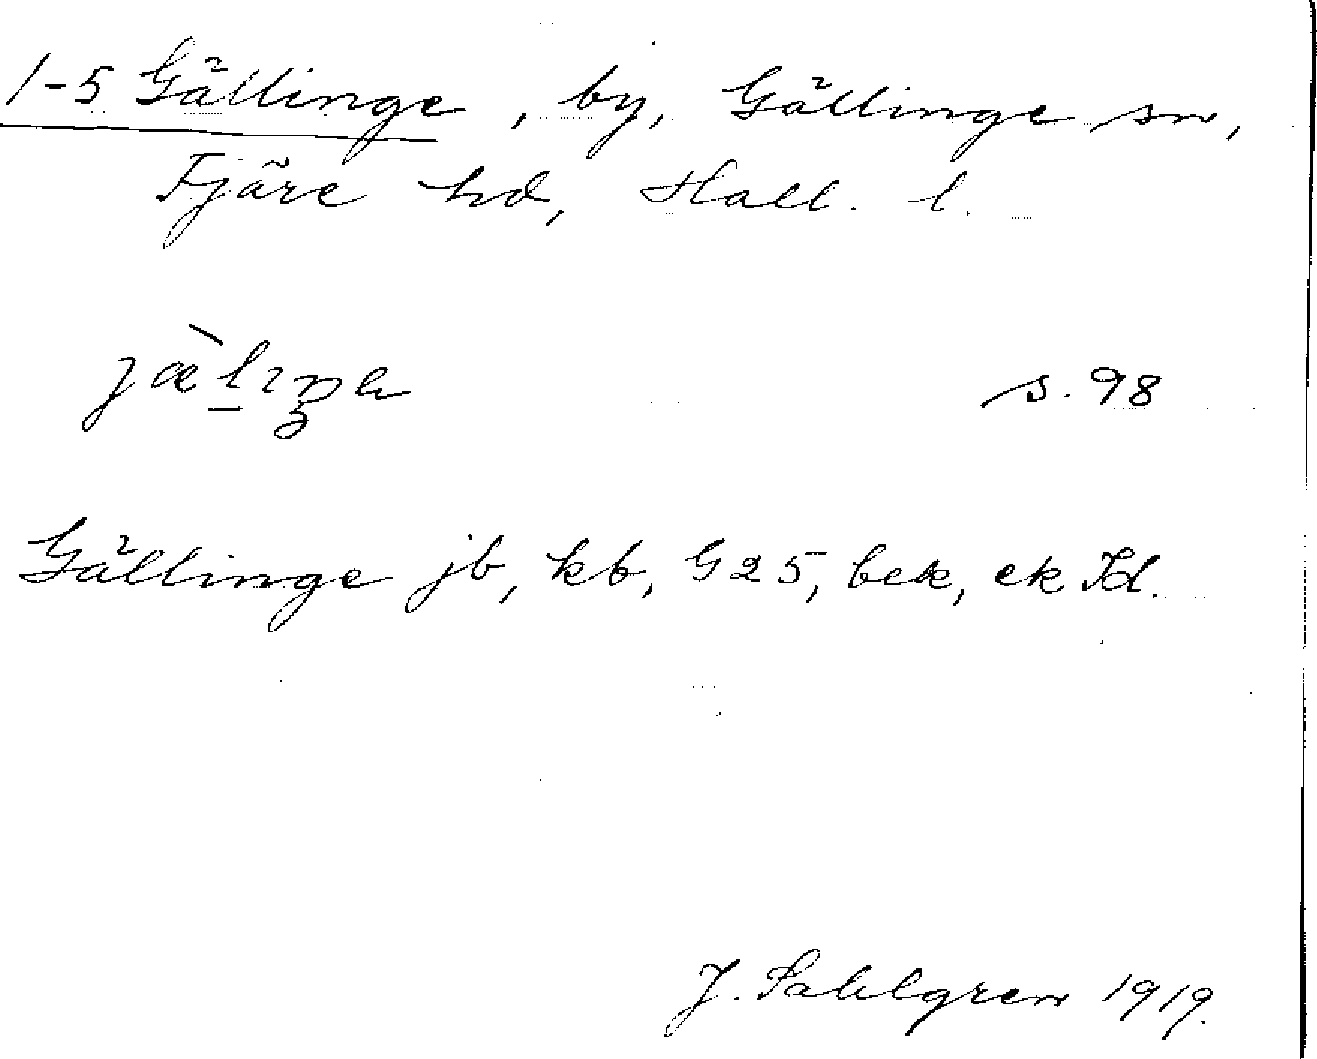 1-5 Gällinge, by, Gällinge sn,
Fjäre hd, Hall. l.
jæ̀lıŋa s. 98
Gällinge jb, kb, G25, bek, ek Kd.
J. Sahlgren 1919.